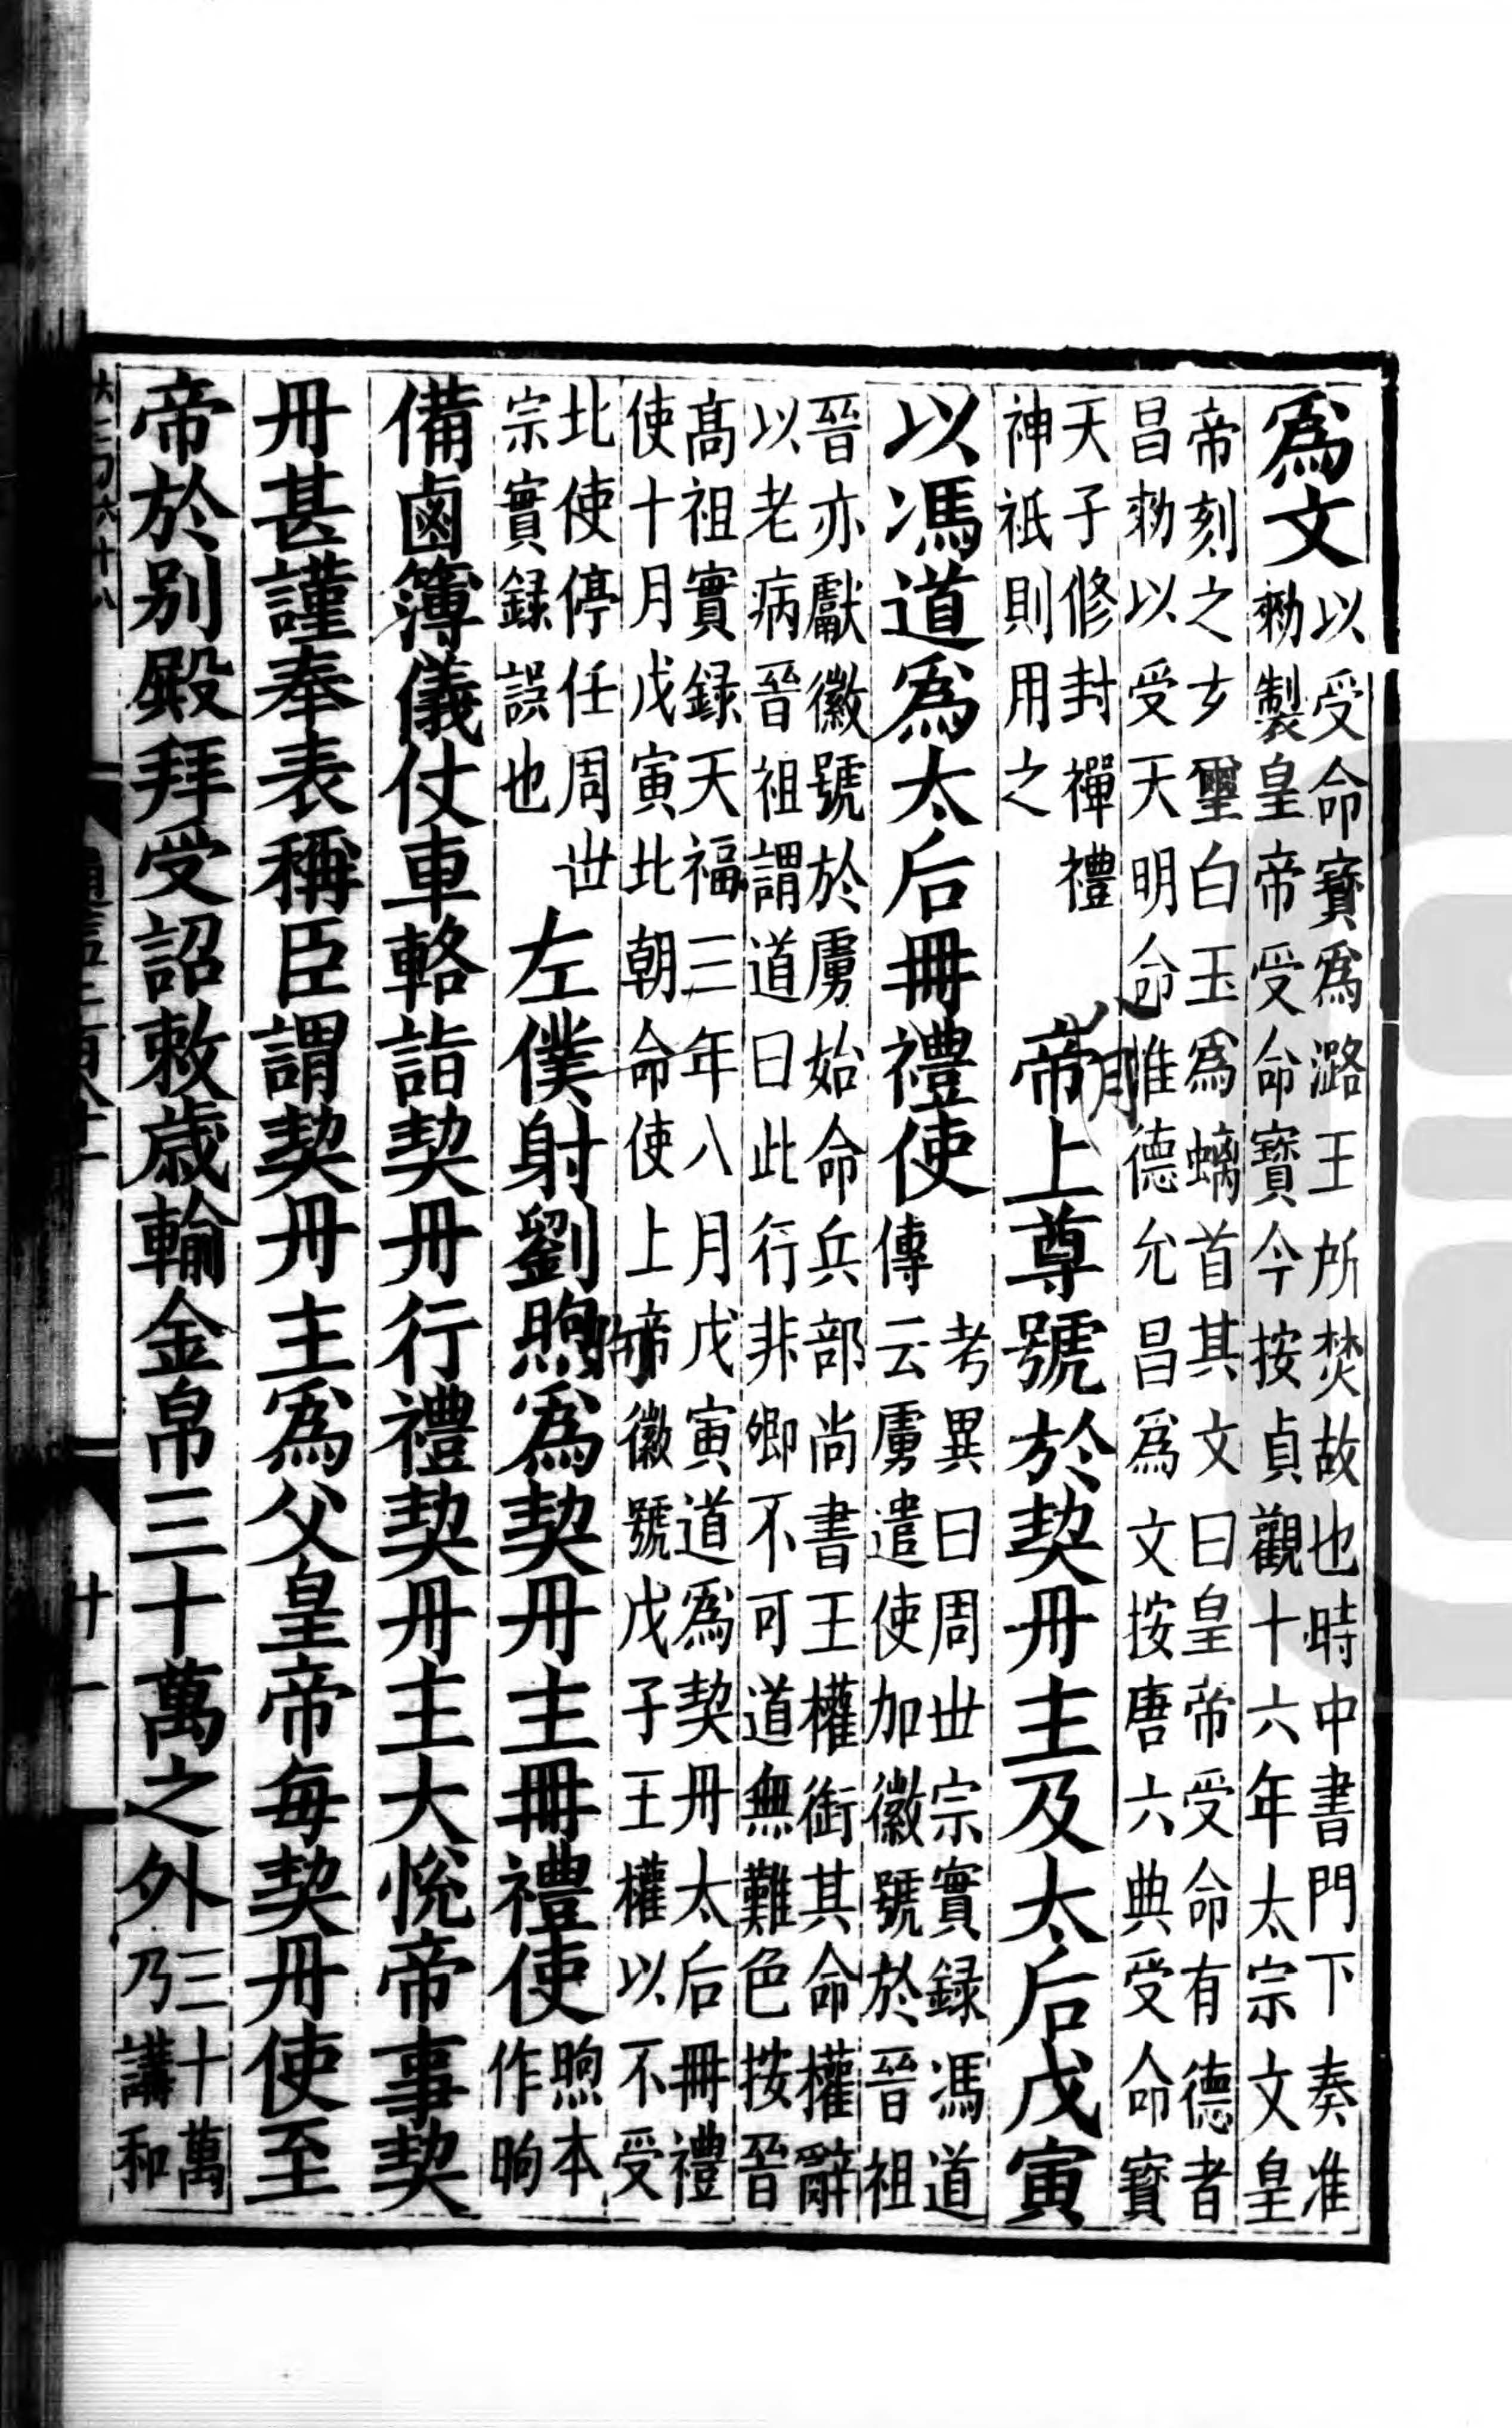 爲文以受命寶爲潞王所焚故也時中書門下奏准
勑製皇帝受命寶今按貞觀十六年太宗文皇
帝刻之玄璽白玉爲螭首其文曰皇帝受命有德者
昌勑以受天明命惟德允昌爲文按唐六典受命寶
天子修封禪禮
神祇則用之
八月
帝上尊號於契丹主及太后戊寅
以馮道爲太后冊禮使考異曰周世宗實録馮道
傳云虜遣使加徽號於晉祖
晉亦獻徽號於虜始命兵部尚書王權銜其命權辭
以老病晉祖謂道曰此行非卿不可道無難色按晉
高祖實録天福三年八月戊寅道爲契丹太后冊禮
使十月戊寅北朝命使上帝徽號戊子王權以不受
北使停任周世
宗實録誤也
左僕射劉煦爲契丹主冊禮使煦本
作昫
昫
備鹵簿儀仗車輅詣契丹行禮契丹主大悅帝事契
丹甚謹奉表稱臣謂契丹主爲父皇帝每契丹使至
帝於别殿拜受詔敕歳輸金帛三十萬之外三十萬
乃講和
廿一